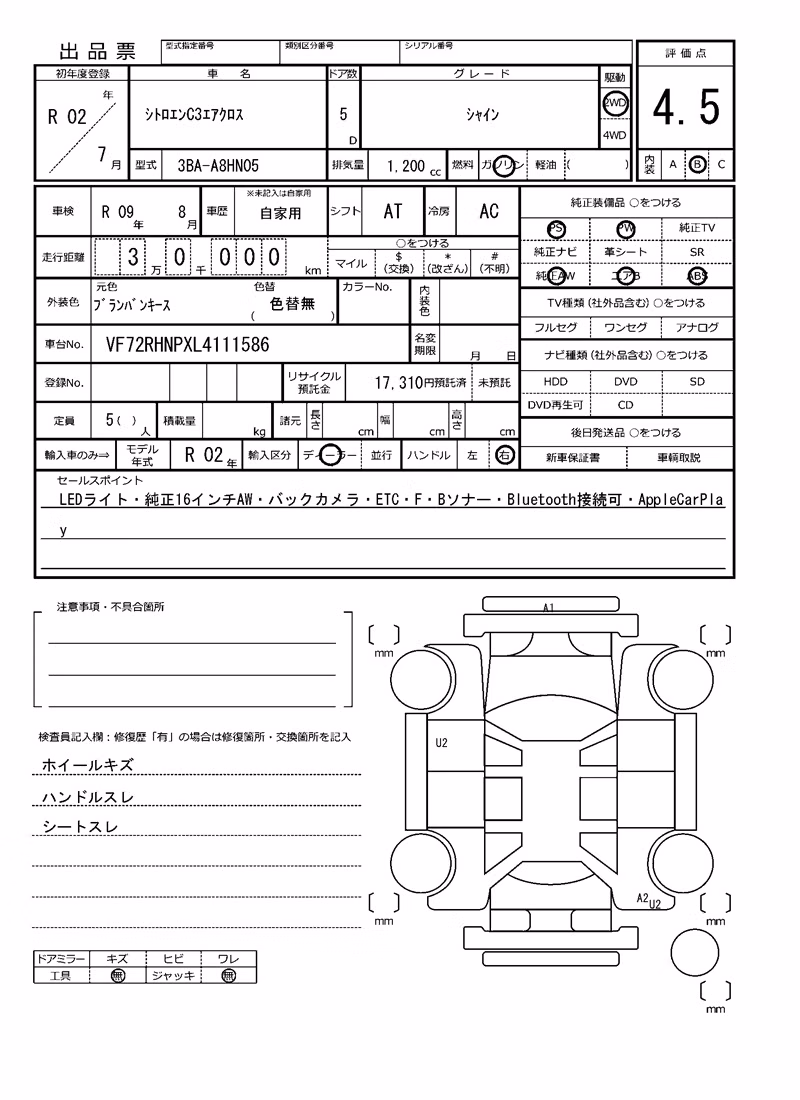 出品票 型式指定番号 類別区分番号 シリアル番号 評価点
初年度登録 車名 ドア数 グレード 駆動
R 02 年 7 月 シトロエンC3エアクロス 5 D シャイン 2WD 4WD 4.5
型式 3BA-A8HN05 排気量 1,200 cc 燃料 ガソリン 軽油 ( ) 内装 A B C
車検 R 09 年 8 月 車歴 ※未記入は自家用 自家用 シフト AT 冷房 AC 純正装備品 ○をつける
PS PW 純正TV
走行距離 3 万 0 千 0 0 0 km ○をつける 純正ナビ 革シート SR
マイル $ (交換) * (改ざん) # (不明) 純正AW エアB ABS
外装色 元色 ブランバンキース 色替 ( 色替無 ) カラーNo. 内装色 TV種類(社外品含む)○をつける
フルセグ ワンセグ アナログ
車台No. VF72RHNPXL4111586 名変期限 月 日 ナビ種類(社外品含む)○をつける
登録No. リサイクル預託金 17,310円預託済 未預託 HDD DVD SD
DVD再生可 CD
定員 5( ) 人 積載量 kg 諸元 長さ cm 幅 cm 高さ cm 後日発送品 ○をつける
輸入車のみ⇒ モデル年式 R 02 年 輸入区分 ディーラー 並行 ハンドル 左 右 新車保証書 車輌取説
セールスポイント
LEDライト・純正16インチAW・バックカメラ・ETC・F・Bソナー・Bluetooth接続可・AppleCarPla
y
注意事項・不具合箇所
A1
mm mm
検査員記入欄：修復歴「有」の場合は修復箇所・交換箇所を記入
U2
ホイールキズ
ハンドルスレ
シートスレ
A2 U2
mm mm
ドアミラー キズ ヒビ ワレ
工具 無 ジャッキ 無
mm